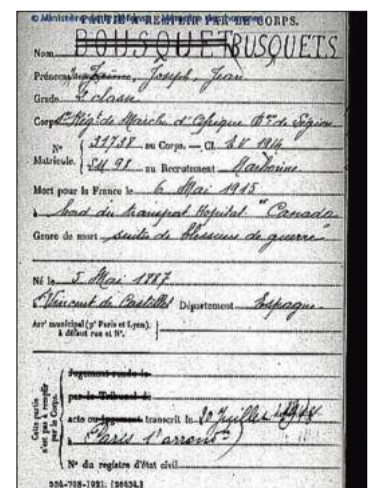 © Ministère de la défense - Mémoire des hommes
PARTIE À REMPLIR PAR LE CORPS.
Nom BOUSQUET BUSQUETS
Prénoms Jaime, Joseph, Jean
Grade 2 classe
Corps 1er Régt de Marche d'Afrique Bon de Légion
N° Matricule. { 31738 au Corps. — Cl. E.V 1914
SM 98 au Recrutement Narbonne
Mort pour la France le 6 Mai 1915
à bord du transport Hopital "Canada
Genre de mort suites de blessures de guerre"
Né le 5 Mai 1887
Vincent de Castellet Département Espagne
Arrt municipal (pr Paris et Lyon),
à défaut rue et N°.
Cette partie n'est pas à remplir par le Corps.
Jugement rendu le
par le Tribunal de
acte ou jugement transcrit le 20 Juillet
à Paris 1er arrondt)
N° du registre d'état civil
534-708-1921. [26434.]